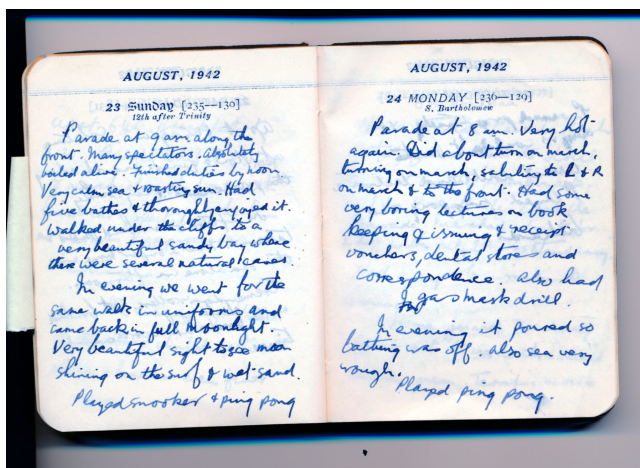 AUGUST, 1942
23 Sunday [235—130]
12th after Trinity
Parade at 9am along the
front. Many spectators. Absolutely
boiled alive. Finished duties by noon.
Very calm sea & roasting sun. Had
five bathes & thoroughly enjoyed it.
Walked under the cliffs to a
very beautiful sandy bay where
there were several natural caves.
In evening we went for the
same walk in uniforms and
came back in full moonlight.
Very beautiful sight to see moon
shining on the surf & wet sand.
Played snooker & ping pong
AUGUST, 1942
24 MONDAY [236—129]
S. Bartholomew
Parade at 8 am. Very hot
again. Did about turn on march,
turning on march, saluting to L & R
on march & to the front. Had some
very boring lectures on book
keeping & issuing & receipt
vouchers, dental stores and
correspondence. also had
gas mask drill.
In evening it poured so
bathing was off. also sea very
rough.
Played ping pong.